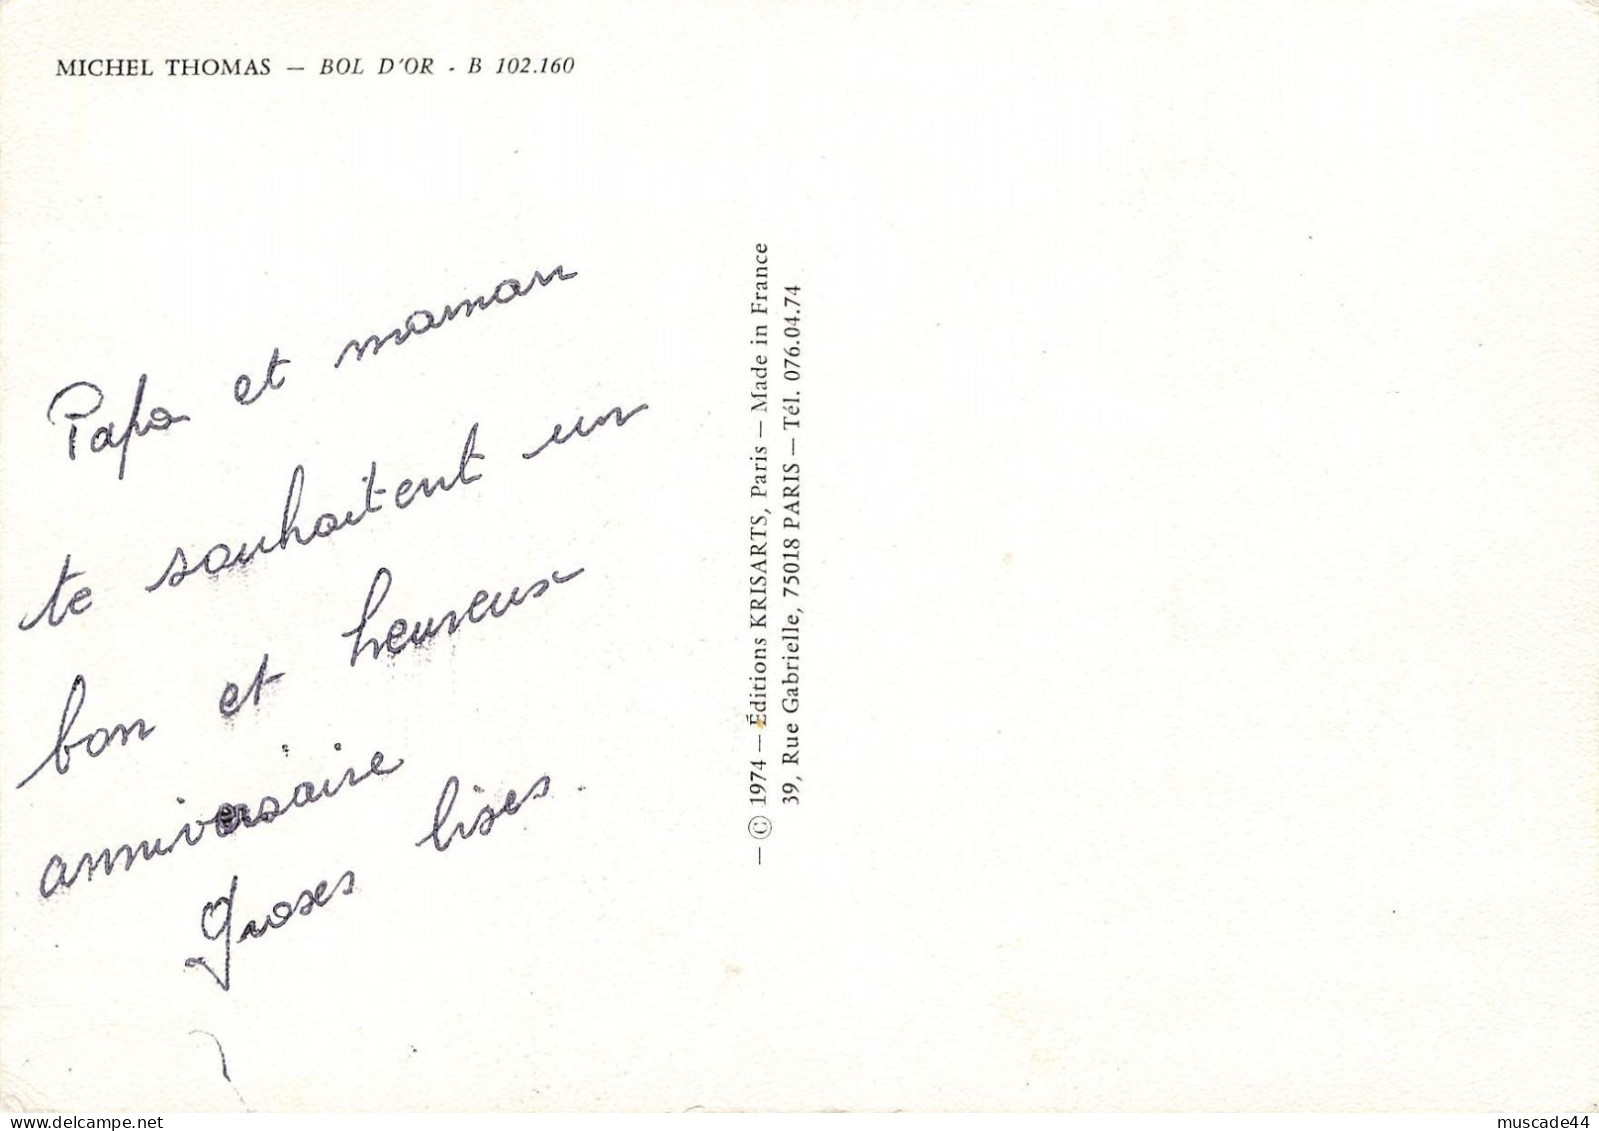 MICHEL THOMAS — BOL D'OR - B 102.160
Papa et maman
te souhaitent un
bon et heureux
anniversaire
Groses bises.
— © 1974 — Éditions KRISARTS, Paris — Made in France
39, Rue Gabrielle, 75018 PARIS — Tél. 076.04.74
muscade44